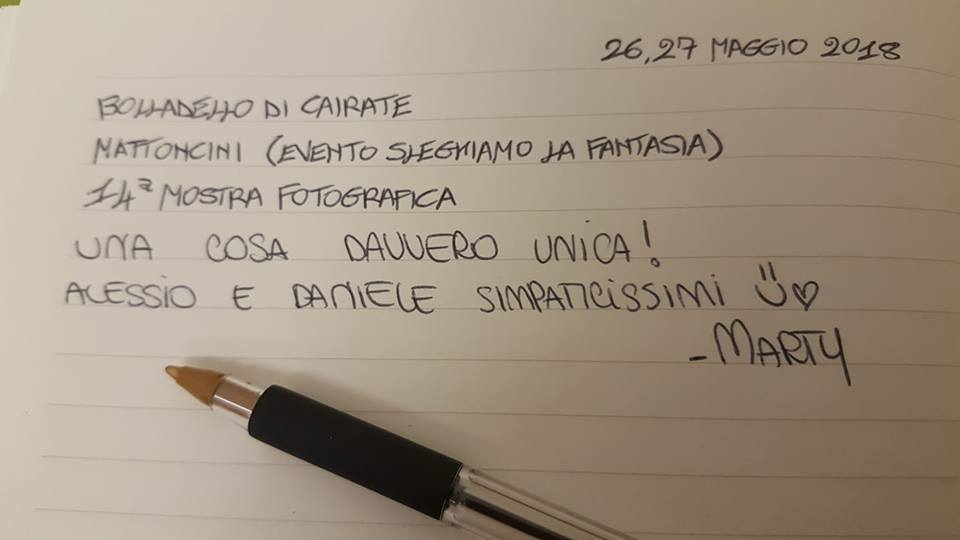 26,27 MAGGIO 2018
BOLLADELLO DI CAIRATE
MATTONCINI (EVENTO SLEGHIAMO LA FANTASIA)
14ª MOSTRA FOTOGRAFICA
UNA COSA DAVVERO UNICA!
ALESSIO E DANIELE SIMPATICISSIMI
-MARTY